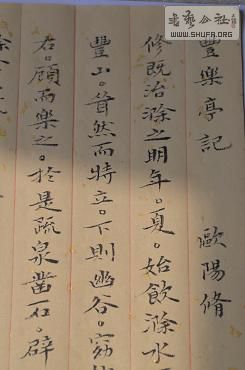 書藝公社
WWW.SHUFA.ORG
豐樂亭記 歐陽脩
修既治滁之明年。夏。始飲滁水
豐山。聳然而特立。下則幽谷。窈
右。顧而樂之。於是疏泉鑿石。辟